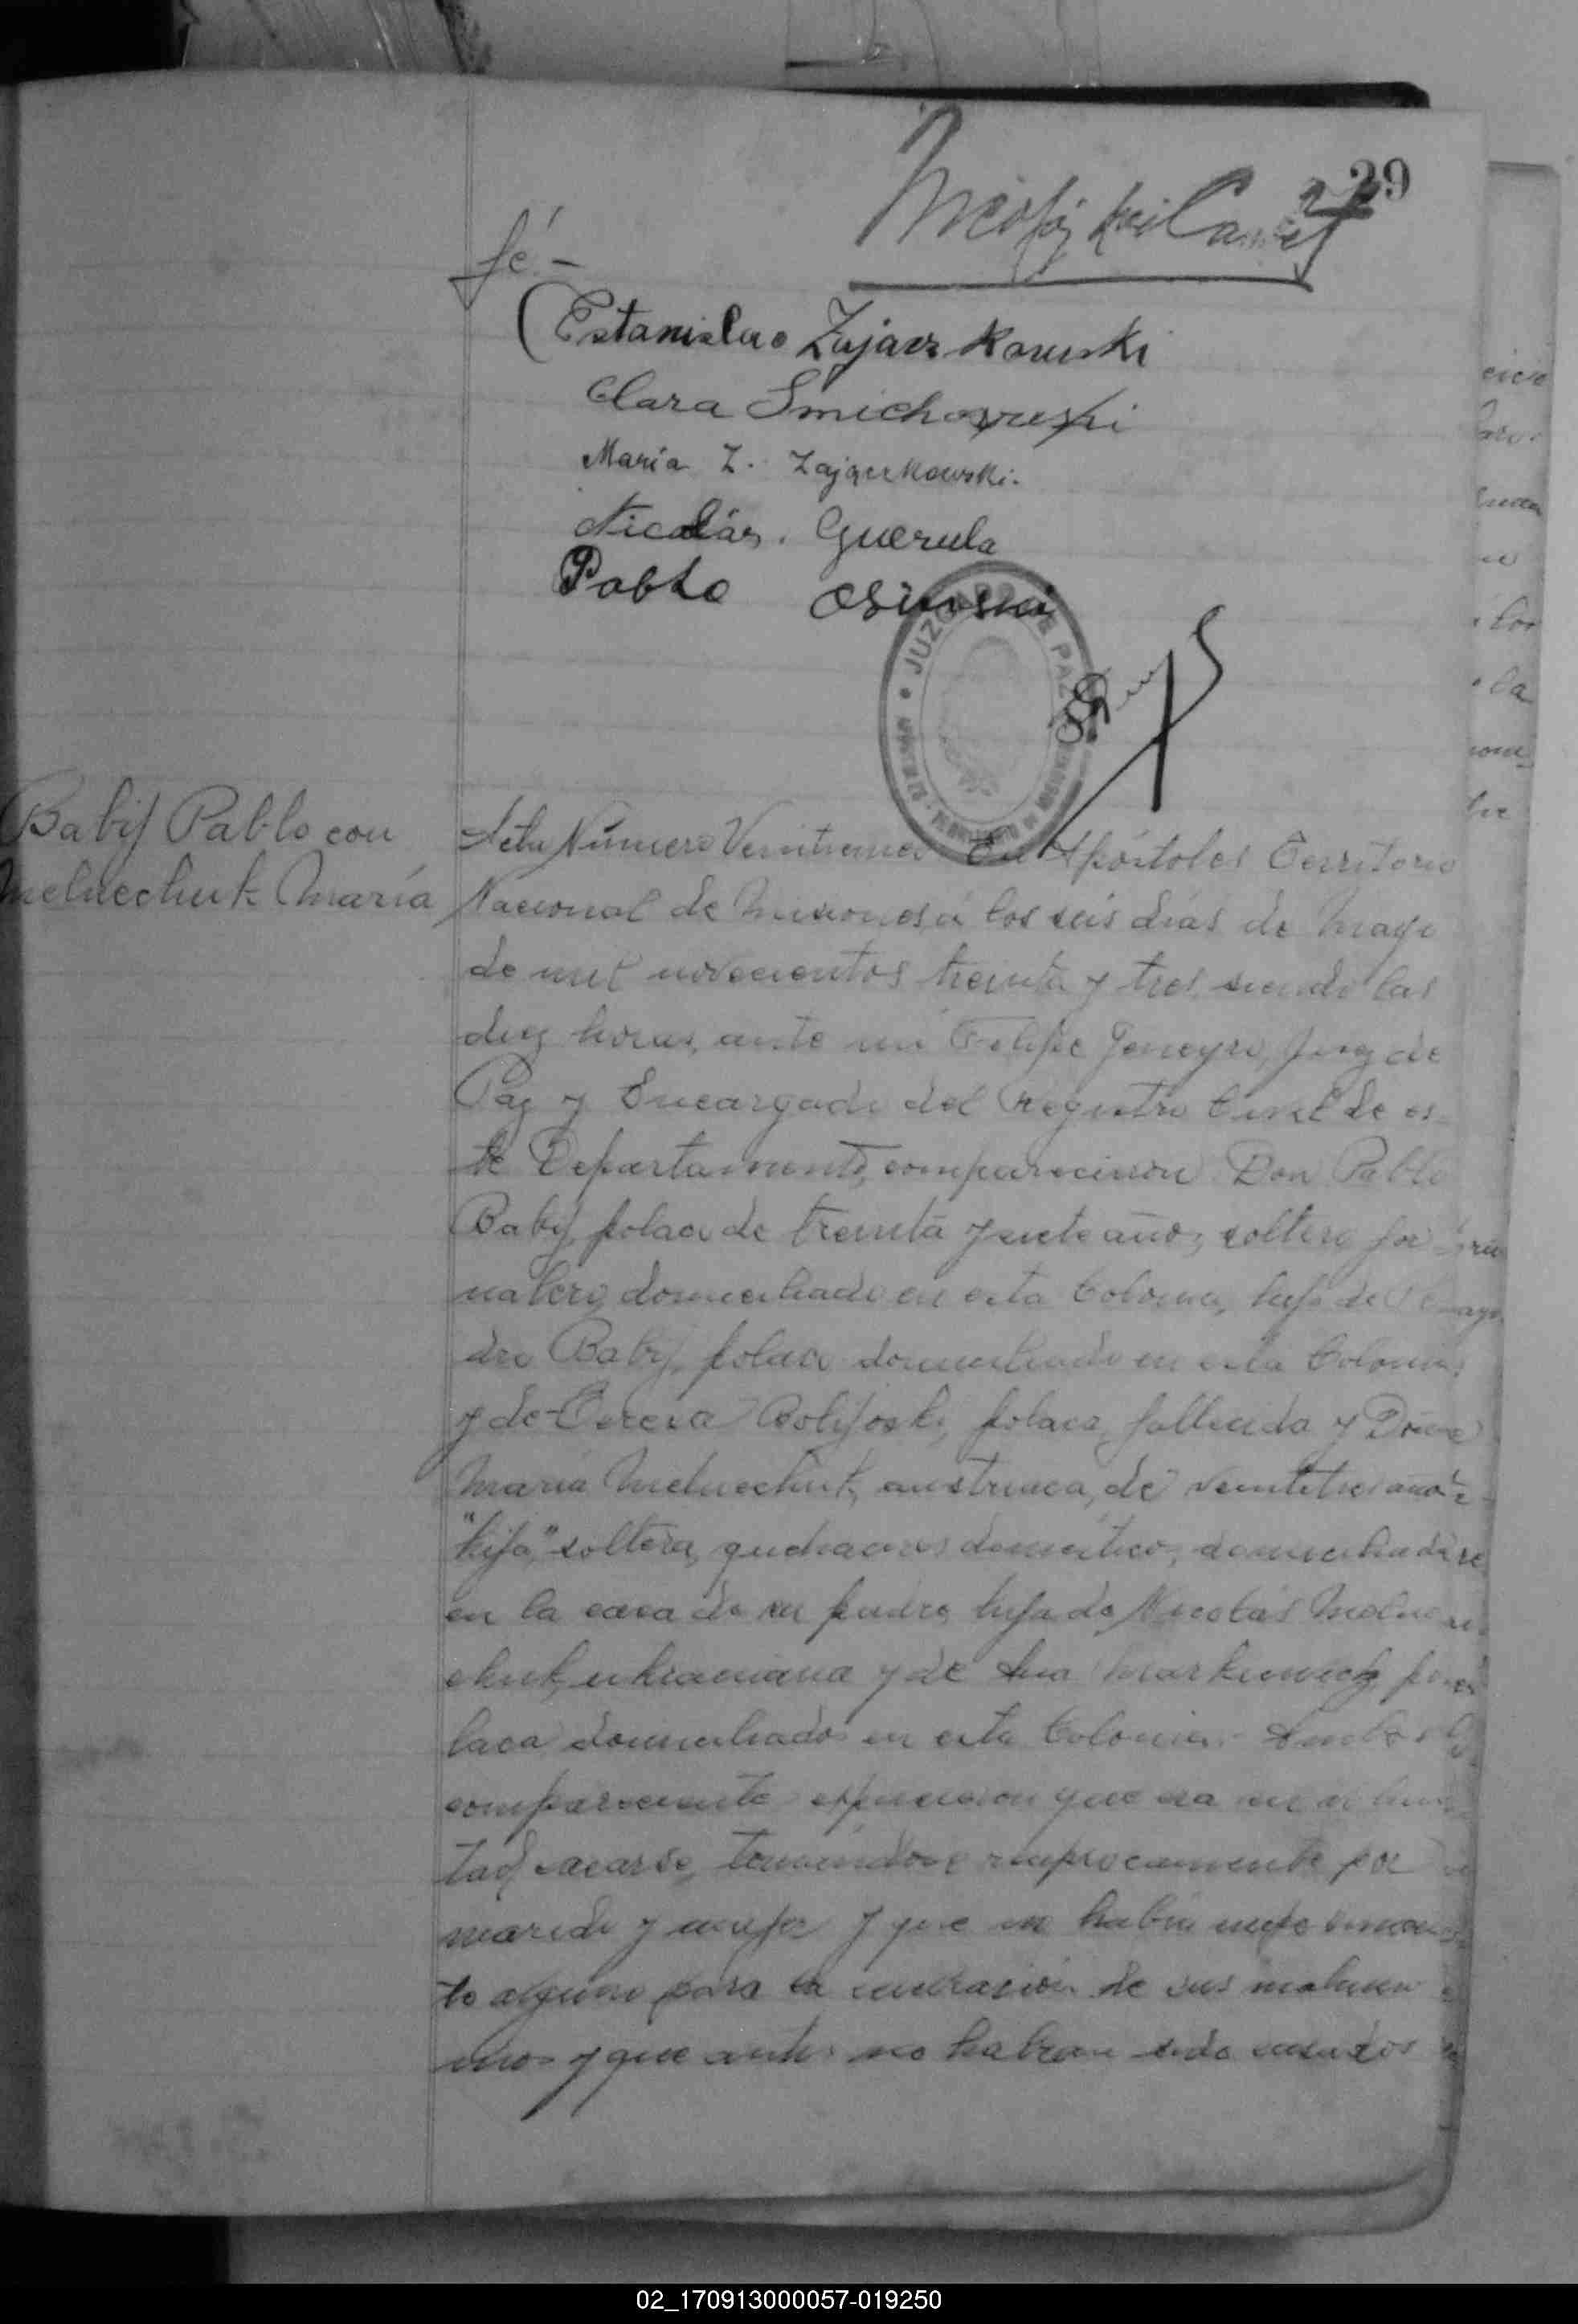 29
fé.-
Estanislao Zajaczkowski
Clara Smichowski
Maria Z. Zajaczkowski.
Nicolás. Guerula
Pablo Osinski
JUZGADO DE PAZ
Babij Pablo con
Melnechuk María
Acta Número En Apóstoles Territorio
Nacional de Misiones, á los seis días de Mayo
de mil novecientos treinta y tres, siendo las
diez horas, ante mi Felipe Juez de
Paz y Encargado del Registro Civil de es-
te Departamento, comparecieron Don Pablo
Babij, polaco de treinta y siete años, soltero, jor
nalero, domiciliado en esta Colonia, hijo de
dro Babij, polaco domiciliado en esta Colonia
y de Teresa polaca, fallecida y Doña
María Melnechuk, austriaca, de veintitres años
"hija," soltera, quehaceres domésticos, domiciliada
en la casa de su padre, hija de Nicolás Melne
chuk, ukraniana y de Ana Markievich po
laca domiciliados en esta Colonia.- Ambos
comparecientes expresaron que era su volun
tad casarse, tomándose reciprocamente por
marido y mujer y que no había impedimen
to alguno para la celebración de sus matrimo
nios y que antes no habian sido casados
02_170913000057-019250